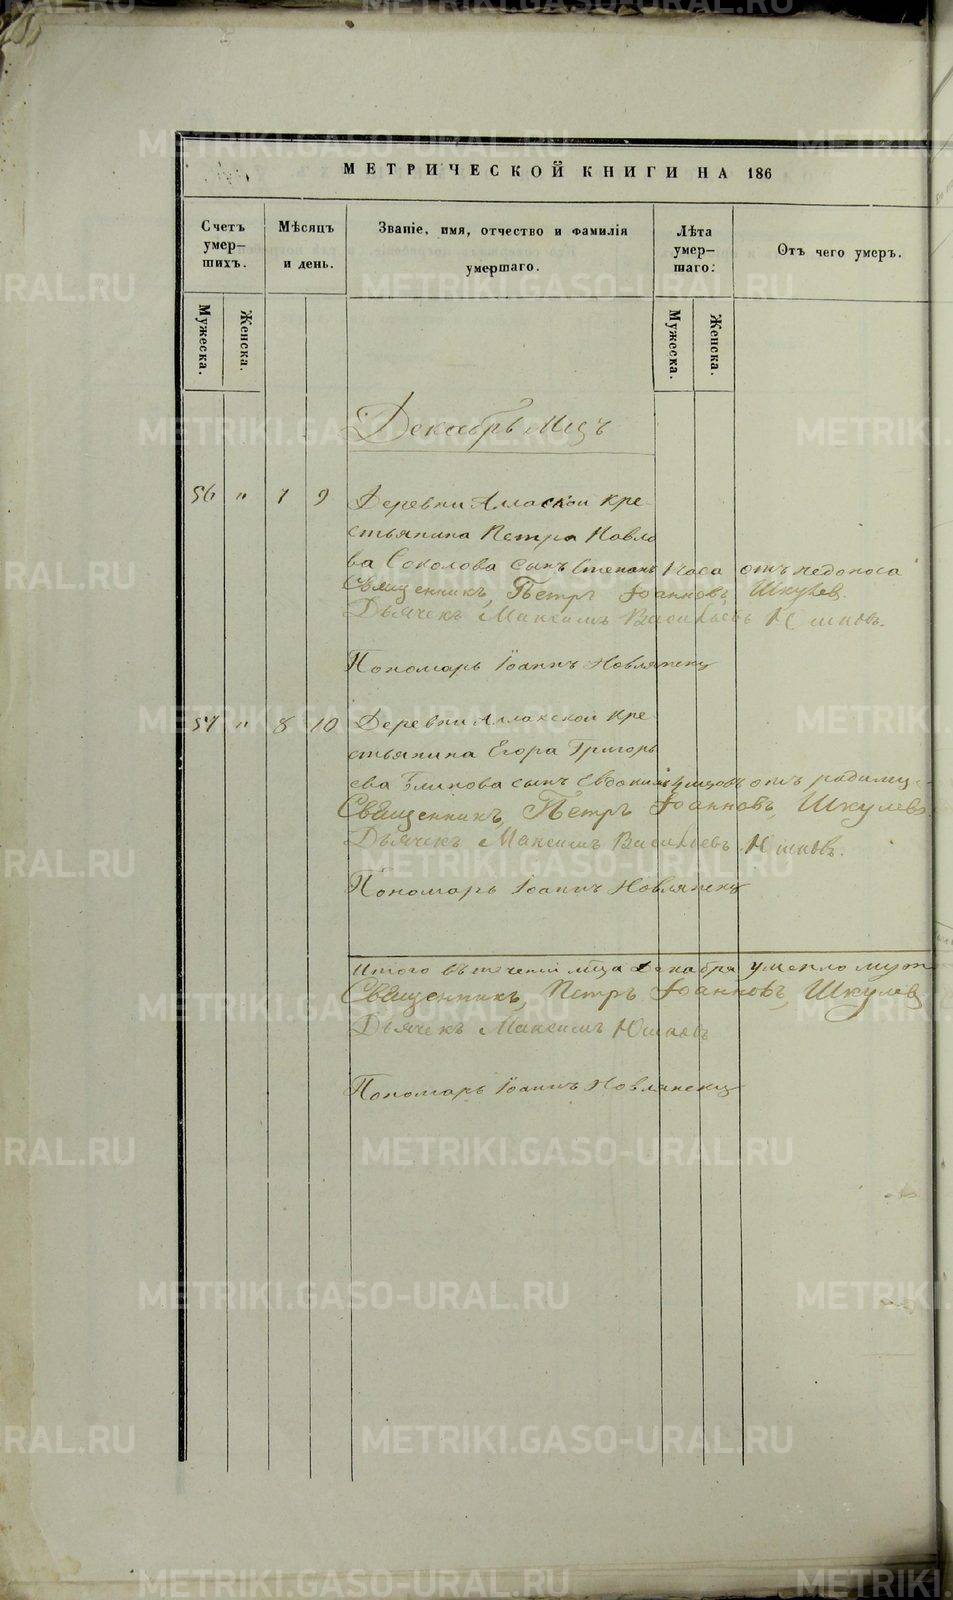 METRIKI.GASO-URAL.RU
МЕТРИЧЕСКОЙ КНИГИ НА 186
Счетъ умер-шихъ.
Мѣсяцъ и день.
Званіе, имя, отчество и фамилія умершаго.
Лѣта умер-шаго:
Отъ чего умеръ.
Мужеска.
Женска.
Мужеска.
Женска.
Декабрь Мцъ
56 " 7 9 Деревни кре-
стьянина Петра Павло
ва Соколова сынъ Степанъ 1 часа отъ недоноса
Священникъ, Петръ Іоанновъ, Шкулев.
Дьячекъ Максимъ Васильевъ Юшковъ.
Пономарь Іоаннъ
57 " 8 10 Деревни кре
стьянина Егора Григорь
ева Блинова сынъ Евдокимъ отъ родимц
Священникъ, Петръ Іоанновъ, Шкулевъ
Дьячекъ Максимъ Васильевъ Юшковъ.
Пономарь Іоаннъ
Итого въ теченіи мца Декабря умерло муж
Священникъ, Петръ Іоанновъ, Шкулев
Дьячекъ Максимъ Юшковъ
Пономарь Іоаннъ